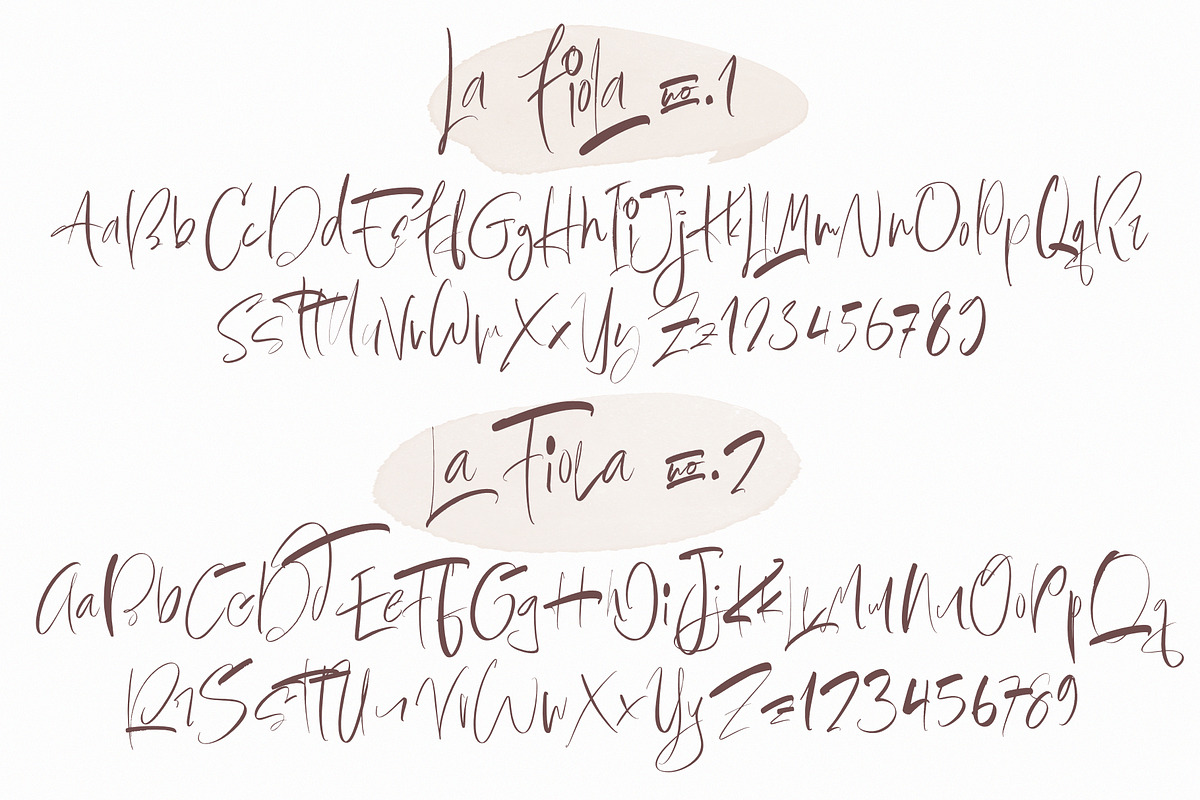 La Fiola no.1
AaBbCcDdEeFfGgHhIiJjKkLlMmNnOoPpQqRr
SsTtUuVvWwXxYyZz123456789
La Fiola no.2
AaBbCcDdEeFfGgHhIiJjKkLlMmNnOoPpQq
RrSsTtUuVvWwXxYyZz123456789